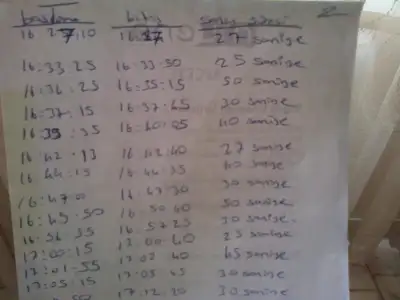 başlama bitiş
16 27 10 16:27 27 saniye
16:33 25 16 33:50 25 saniye
16:34 25 16:35:15 50 saniye
16:37:15 16:37:45 30 saniye
16 39:35 16:40:05 40 saniye
16 42:13 16 42:40 27 saniye
16 44:15 16 44:55 40 saniye
16:47:0 16:47:30 30 saniye
16:49:50 16 50 40 50 saniye
16:56 55 16 57 25 30 saniye
17:00:15 17 00:40 25 saniye
17:01:55 17 02 40 45 saniye
17:05:15 17 05 45 30 saniye
50 17:12:20 30 saniye